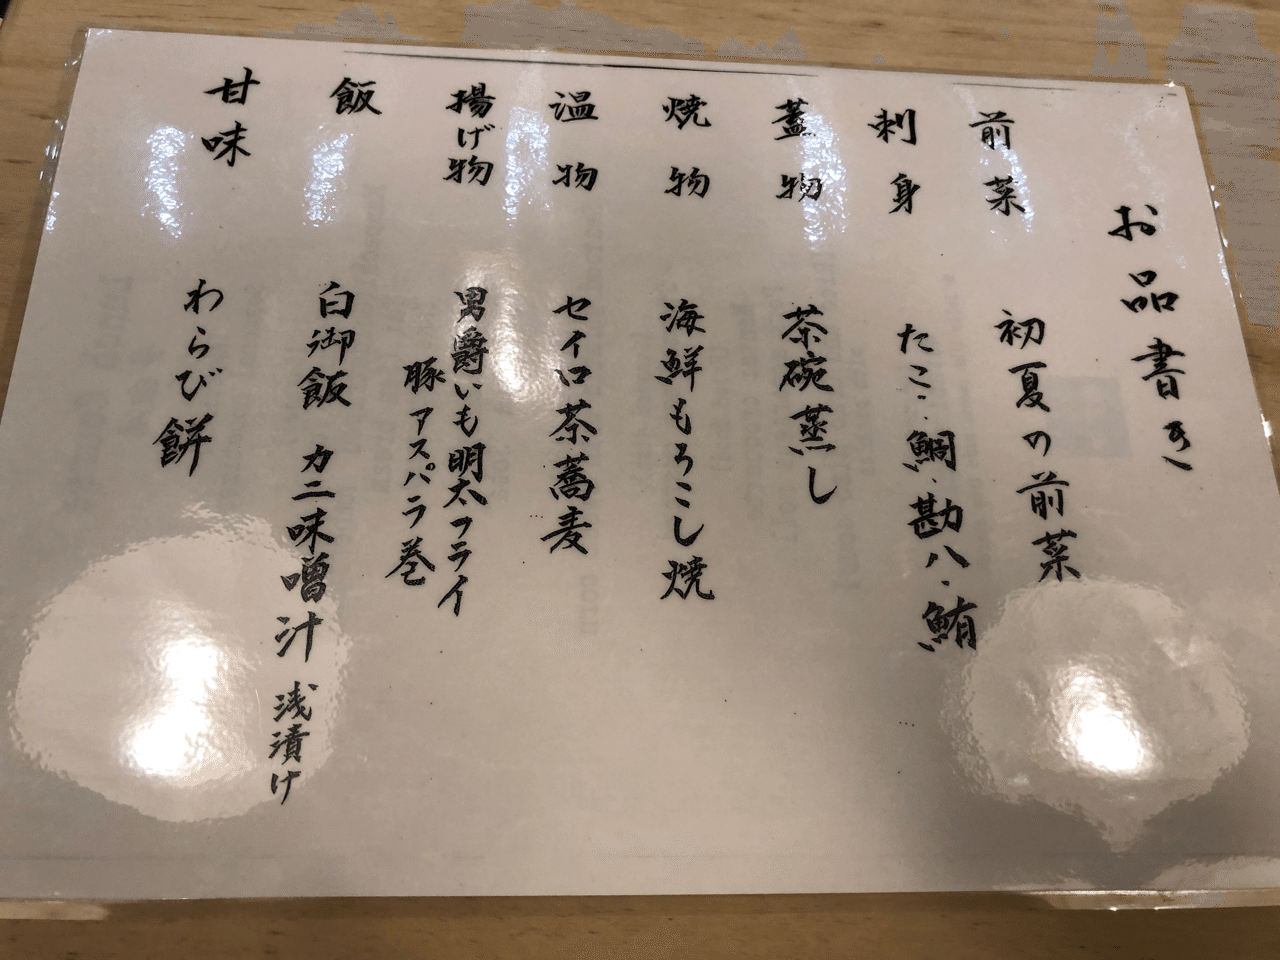 お品書き
前菜 初夏の前菜
刺身 たこ・鯛・勘八・鮪
蓋物 茶碗蒸し
焼物 海鮮もろこし焼
温物 セイロ茶蕎麦
揚げ物 男爵いも明太フライ
豚アスパラ巻
飯 白御飯 カニ味噌汁 浅漬け
甘味 わらび餅